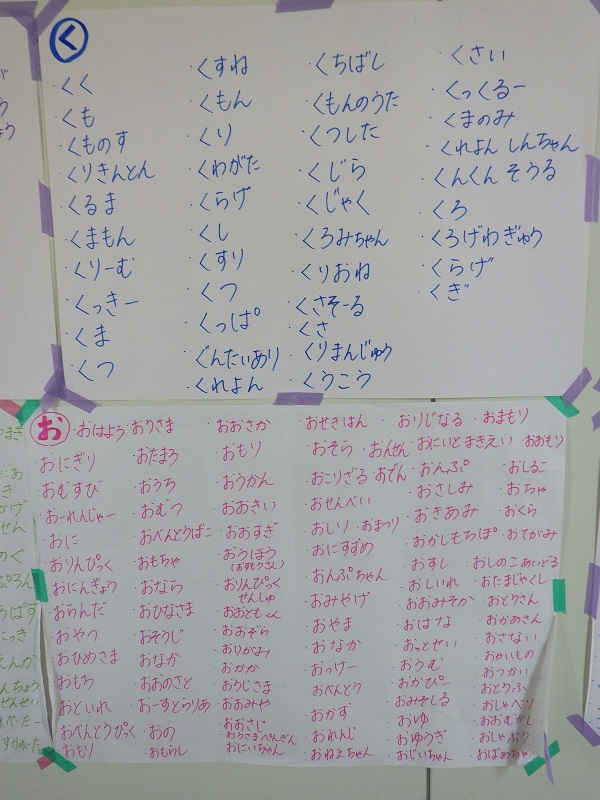 く
・くく
・くも
・くものす
・くりきんとん
・くるま
・くまもん
・くりーむ
・くっきー
・くま
・くつ
・くすね
・くもん
・くり
・くわがた
・くらげ
・くし
・くすり
・くつ
・くっぱ
・ぐんたいあり
・くれよん
・くちばし
・くものうた
・くつした
・くじら
・くじゃく
・くろみちゃん
・くりおね
・くさそーる
・くさ
・くりまんじゅう
・くうこう
・くさい
・くっくるー
・くまのみ
・くれよんしんちゃん
・くんくん そうる
・くろ
・くろげわぎゅう
・くらげ
・くぎ
お
・おはよう
おにぎり
おむすび
おーれんじゃー
おに
おりんぴっく
おにんぎょう
おらんだ
おやつ
おひめさま
おもち
おといれ
おべんとうぴっく
おもり
おりさま
・おたまろ
・おうち
・おむつ
・おべんとうばこ
・おもちゃ
・おなら
・おひなさま
・おそうじ
・おなか
・おおのさと
・おーすとらりあ
・おの
・おもらし
・おおさか
・おもり
・おうかん
・おおきい
・おおすぎ
・おりんぴっく
せんしゅ
・おおぞら
・おりがみ
・おかか
・おうじさま
・おおみや
・おおさじ
・おうさまぺんぎん
・おにいちゃん
・おせきはん
・おそら
・おんせん
・おこりざる
・おでん
・おせんべい
・おしり
・おまつり
・おにすずめ
・おんぷちゃん
・おみやげ
・おやま
・おなか
・おっけー
・おべんとう
・おかず
・おれんじ
・おねえちゃん
・おりじなる
・おにいとまきえい
・おんぷ
・おさしみ
・おきあみ
・おかしもちぽ
・おすし
・おしいれ
・おおみそか
・おはな
・おっとせい
・おうむ
・おかぴー
・おみそしる
・おゆ
・おゆうぎ
・おじいちゃん
・おまもり
・おおもり
・おしるこ
・おちゃ
・おくら
・おてがみ
・おしのこ あいどる
・おたまじゃくし
・おとうさん
・おかあさん
・おさない
・おかいもの
・おつかい
・おとうふ
・おしゃべり
・おおむかし
・おしゃぶり
・おばあちゃん